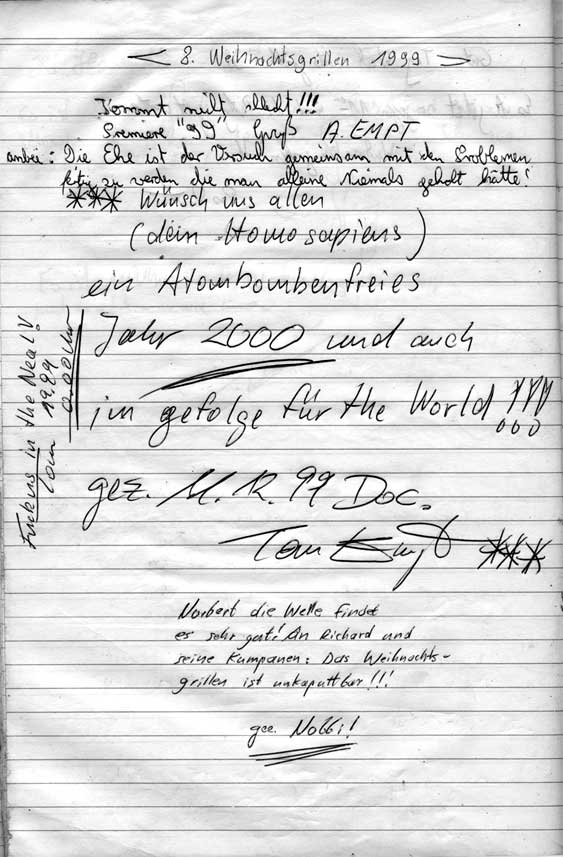 8. Weihnachtsgrillen 1999
Kommt nicht schlecht!!!
Premiere "99" Gruß A. EMPT
anbei: Die Ehe ist der Versuch gemeinsam mit den Problemen
fertig zu werden die man alleine Niemals gehabt hätte!
*** Wünsch uns allen
(dem Homosapiens)
ein Atombombenfreies
Jahr 2000 und auch
im gefolge für the World !!!
gez. 11.12.99 Doc.
Tom ***
in the
1999
0.00 Uhr
Tom
Norbert die Welle findet
es sehr gut! An Richard und
seine Kumpanen: Das Weihnachts-
grillen ist unkaputtbar!!!
gez. Nobbi!